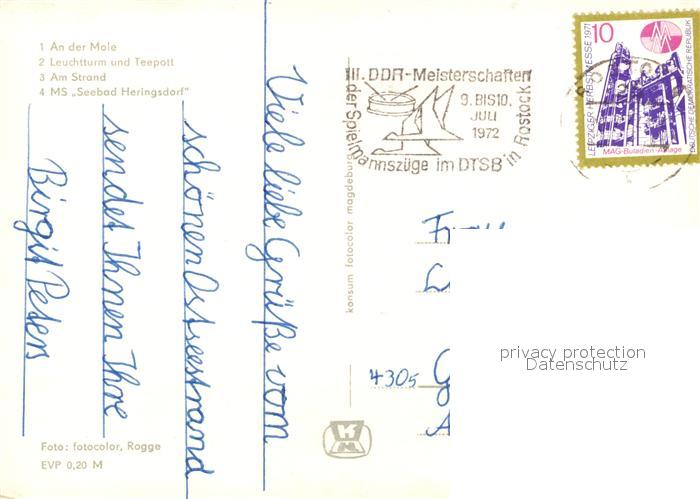 1 An der Mole
2 Leuchtturm und Teepott
3 Am Strand
4 MS „Seebad Heringsdorf"
Viele liebe Grüße vom
schönen Ostseestrand
sendet Ihnen Ihre
Birgit Peters
Foto: fotocolor, Rogge
EVP 0,20 M
konsum fotocolor magdeburg
III. DDR-Meisterschaften
der Spielmannszüge im DTSB in Rostock
9. BIS 10.
JULI
1972
10
LEIPZIGER HERBSTMESSE 1971
MAG-Butadien-Anlage
DEUTSCHE DEMOKRATISCHE REPUBLIK
4305
privacy protection
Datenschutz